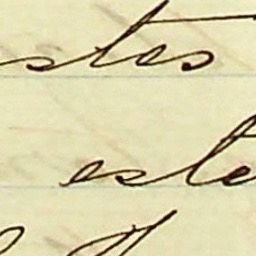 stes
este